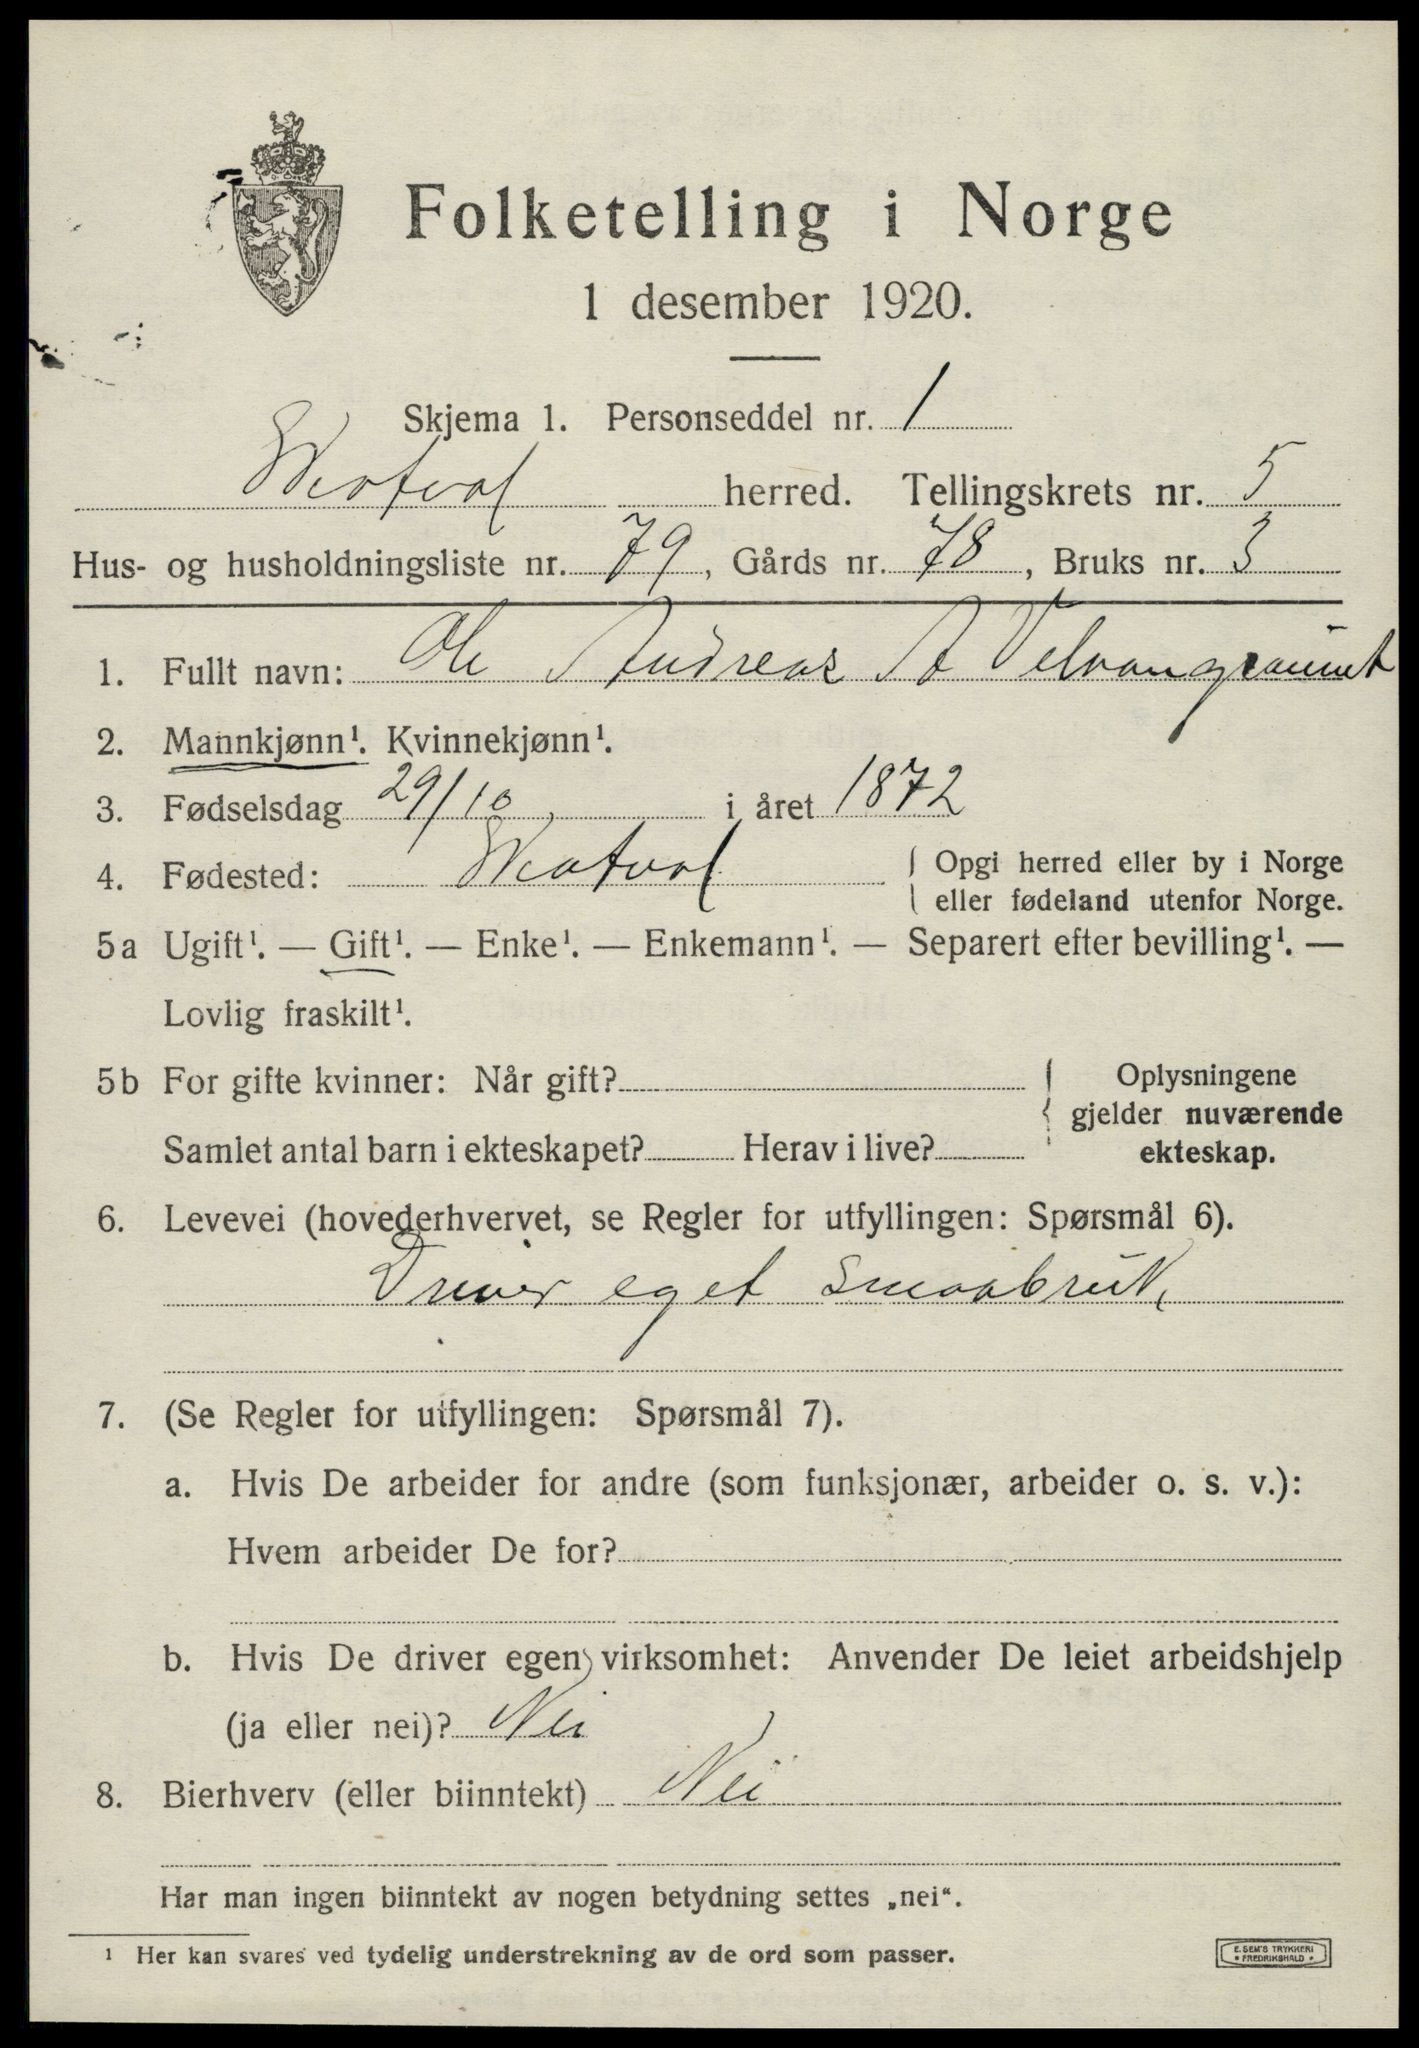 Folketelling i Norge
1 desember 1920.
Skjema 1. Personseddel nr. 1
herred. Tellingskrets nr. 5
Hus- og husholdningsliste nr. 79, Gårds nr. 78, Bruks nr. 3
1. Fullt navn: Ole Andreas A
2. Mannkjønn¹. Kvinnekjønn¹.
3. Fødselsdag 29/10 i året 1872
4. Fødested: { Opgi herred eller by i Norge
eller fødeland utenfor Norge.
5a Ugift¹. — Gift¹. — Enke¹. — Enkemann¹. — Separert efter bevilling¹. —
Lovlig fraskilt¹.
5b For gifte kvinner: Når gift? { Oplysningene
gjelder nuværende
Samlet antal barn i ekteskapet? Herav i live? ekteskap.
6. Levevei (hovederhvervet, se Regler for utfyllingen: Spørsmål 6).
Driver eget smaabruk,
7. (Se Regler for utfyllingen: Spørsmål 7).
a. Hvis De arbeider for andre (som funksjonær, arbeider o. s. v.):
Hvem arbeider De for?
b. Hvis De driver egen virksomhet: Anvender De leiet arbeidshjelp
(ja eller nei)? Nei
8. Bierhverv (eller biinntekt) Nei
Har man ingen biinntekt av nogen betydning settes „nei“.
¹ Her kan svares ved tydelig understrekning av de ord som passer.
E. SEM'S TRYKKERI
• FREDRIKSHALD •